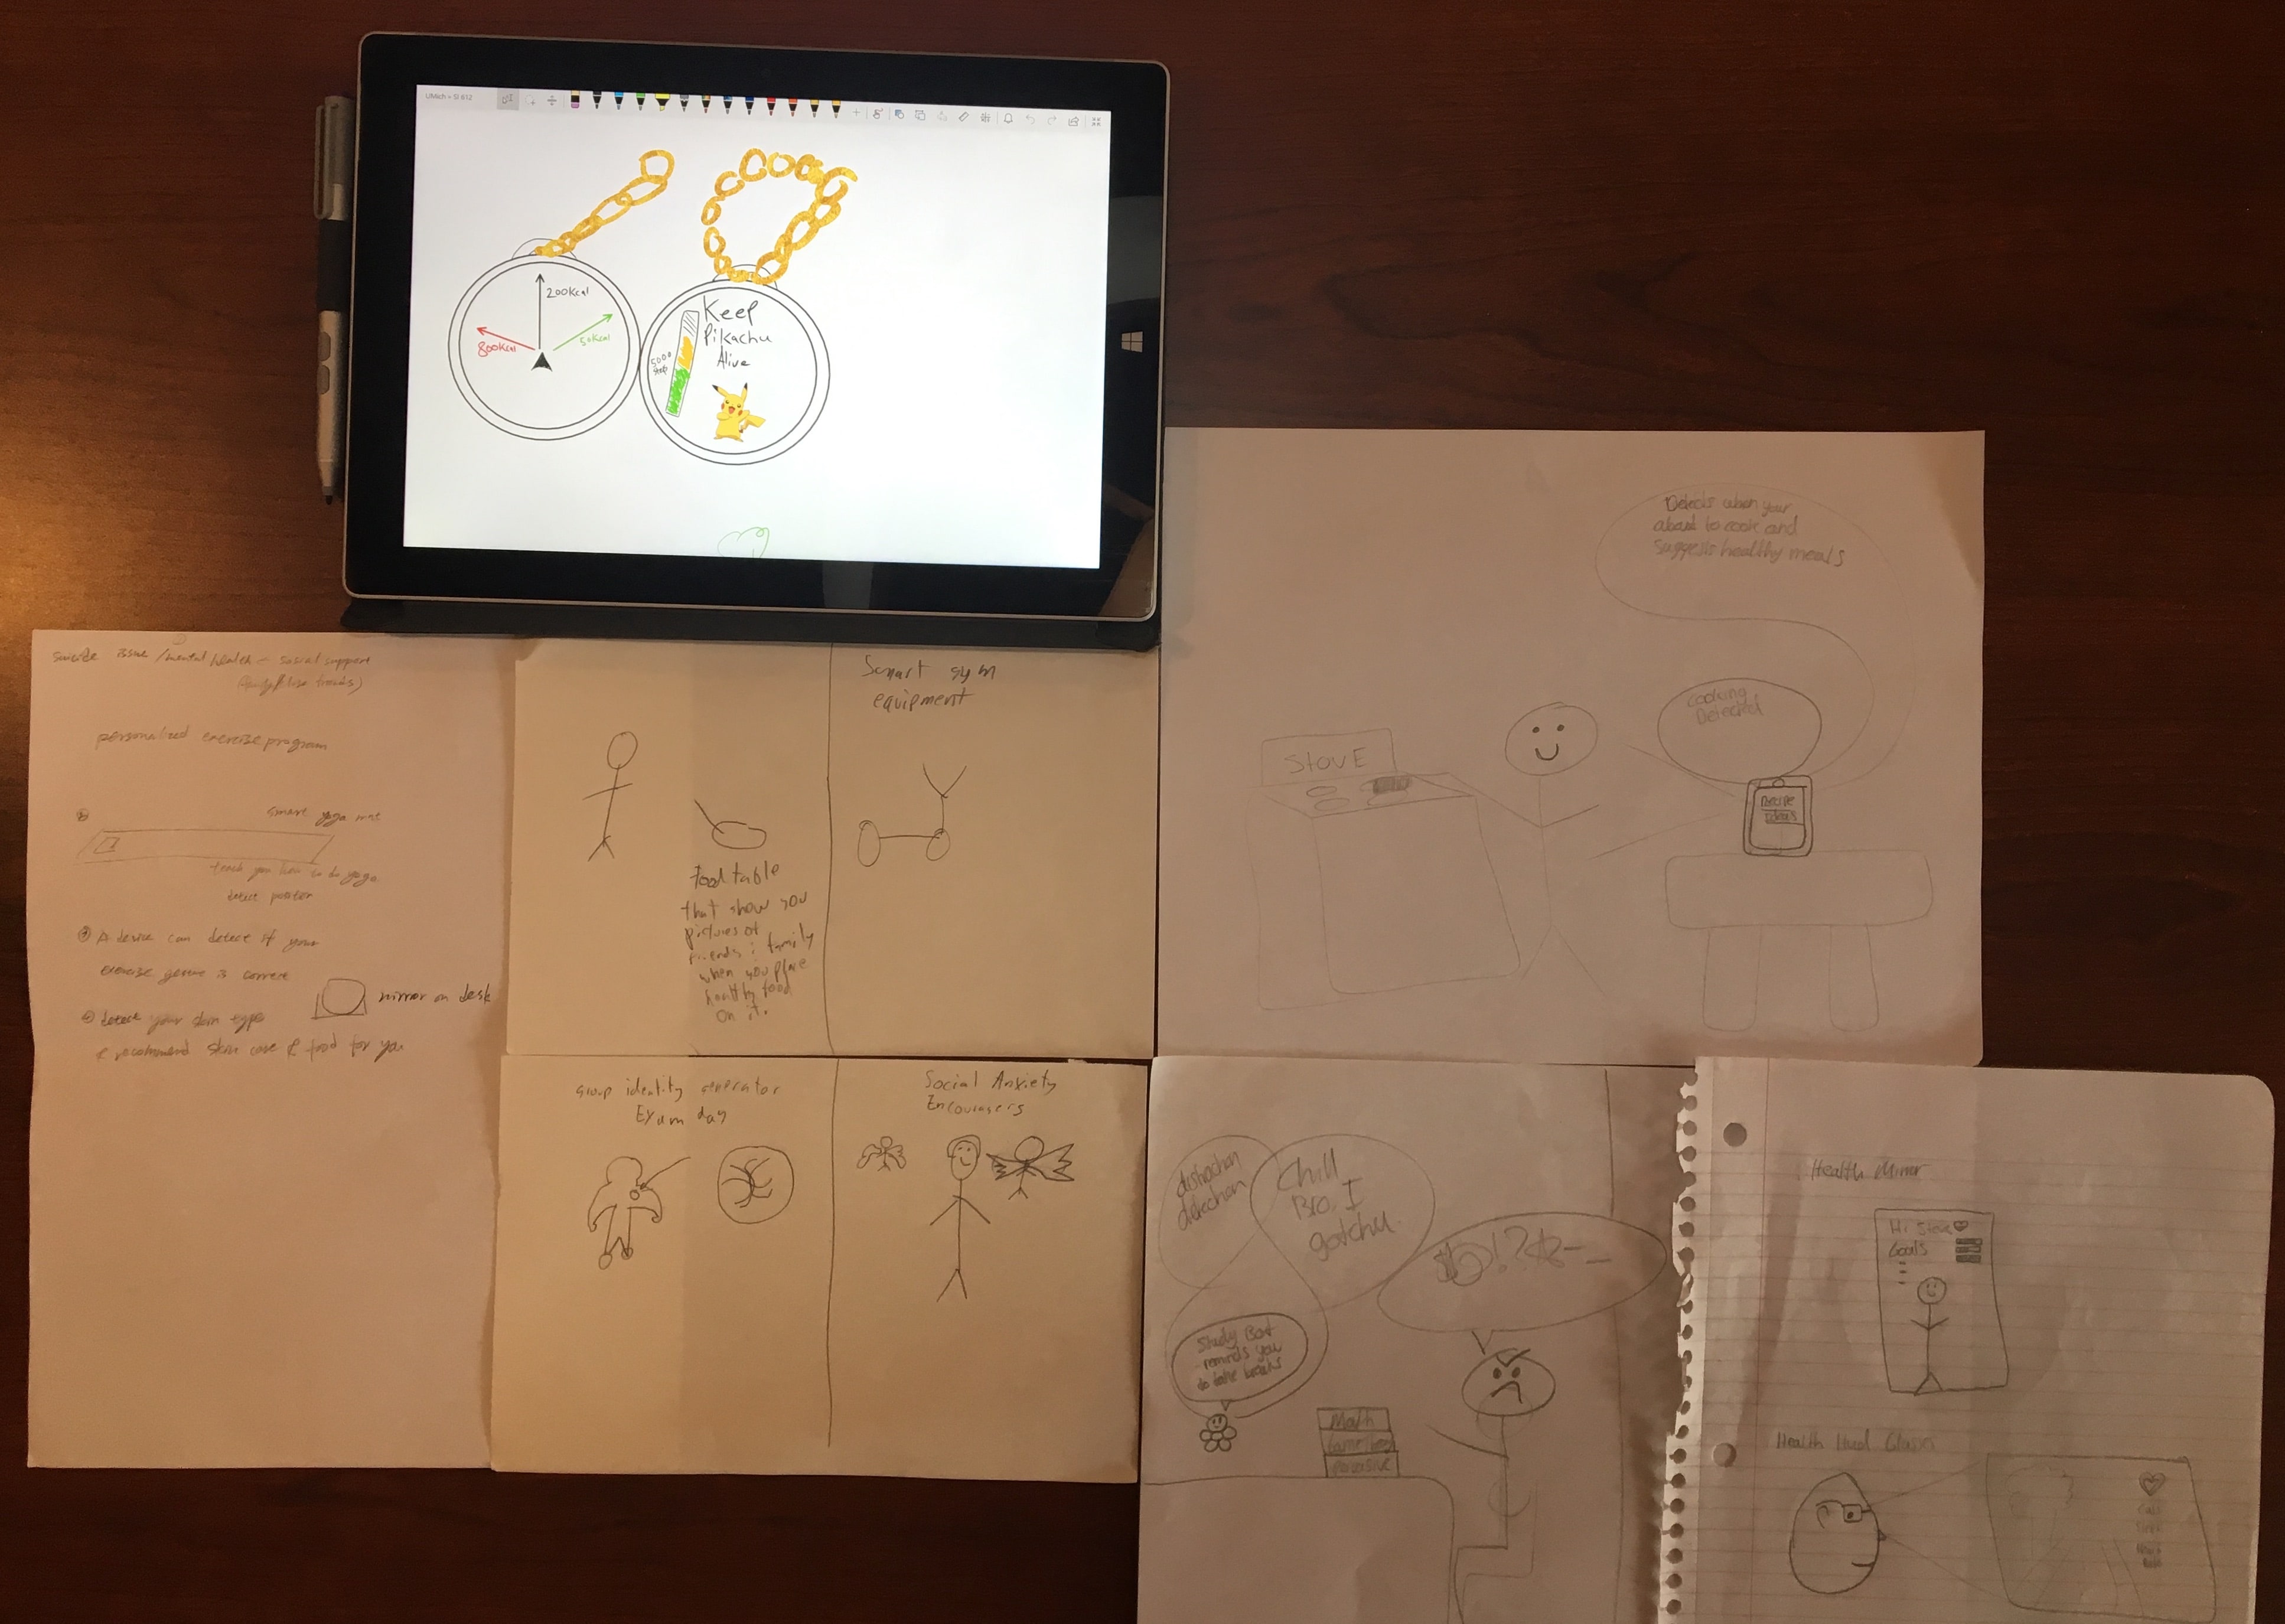 UMich - SI 612
200Kcal
800Kcal
50Kcal
Keep
Pikachu
Alive
5000
Steps
Detects when your
about to cook and
suggests healthy meals
Cooking
Detected
STOVE
Recipe
Ideas
suicide issue /mental health - social support
friends)
personalized exercise program
smart yoga mat
teach you how to do yoga
detect
③ A device can detect if your
exercise is correct
mirror on desk
④ detect your skin type
& recommend skin care & food for you
Smart gym
equipment
Food table
that show you
pictures of
friends & family
when you place
healthy food
on it.
Group identity generator
Exam day
Social Anxiety
Encouragers
distraction
detection
Chill
Bro, I
gotchu.
!?
Study Bot
reminds you
to take breaks
Math
Pervasive
Health Mirror
Hi Steve
Goals
Health Hud Glasses